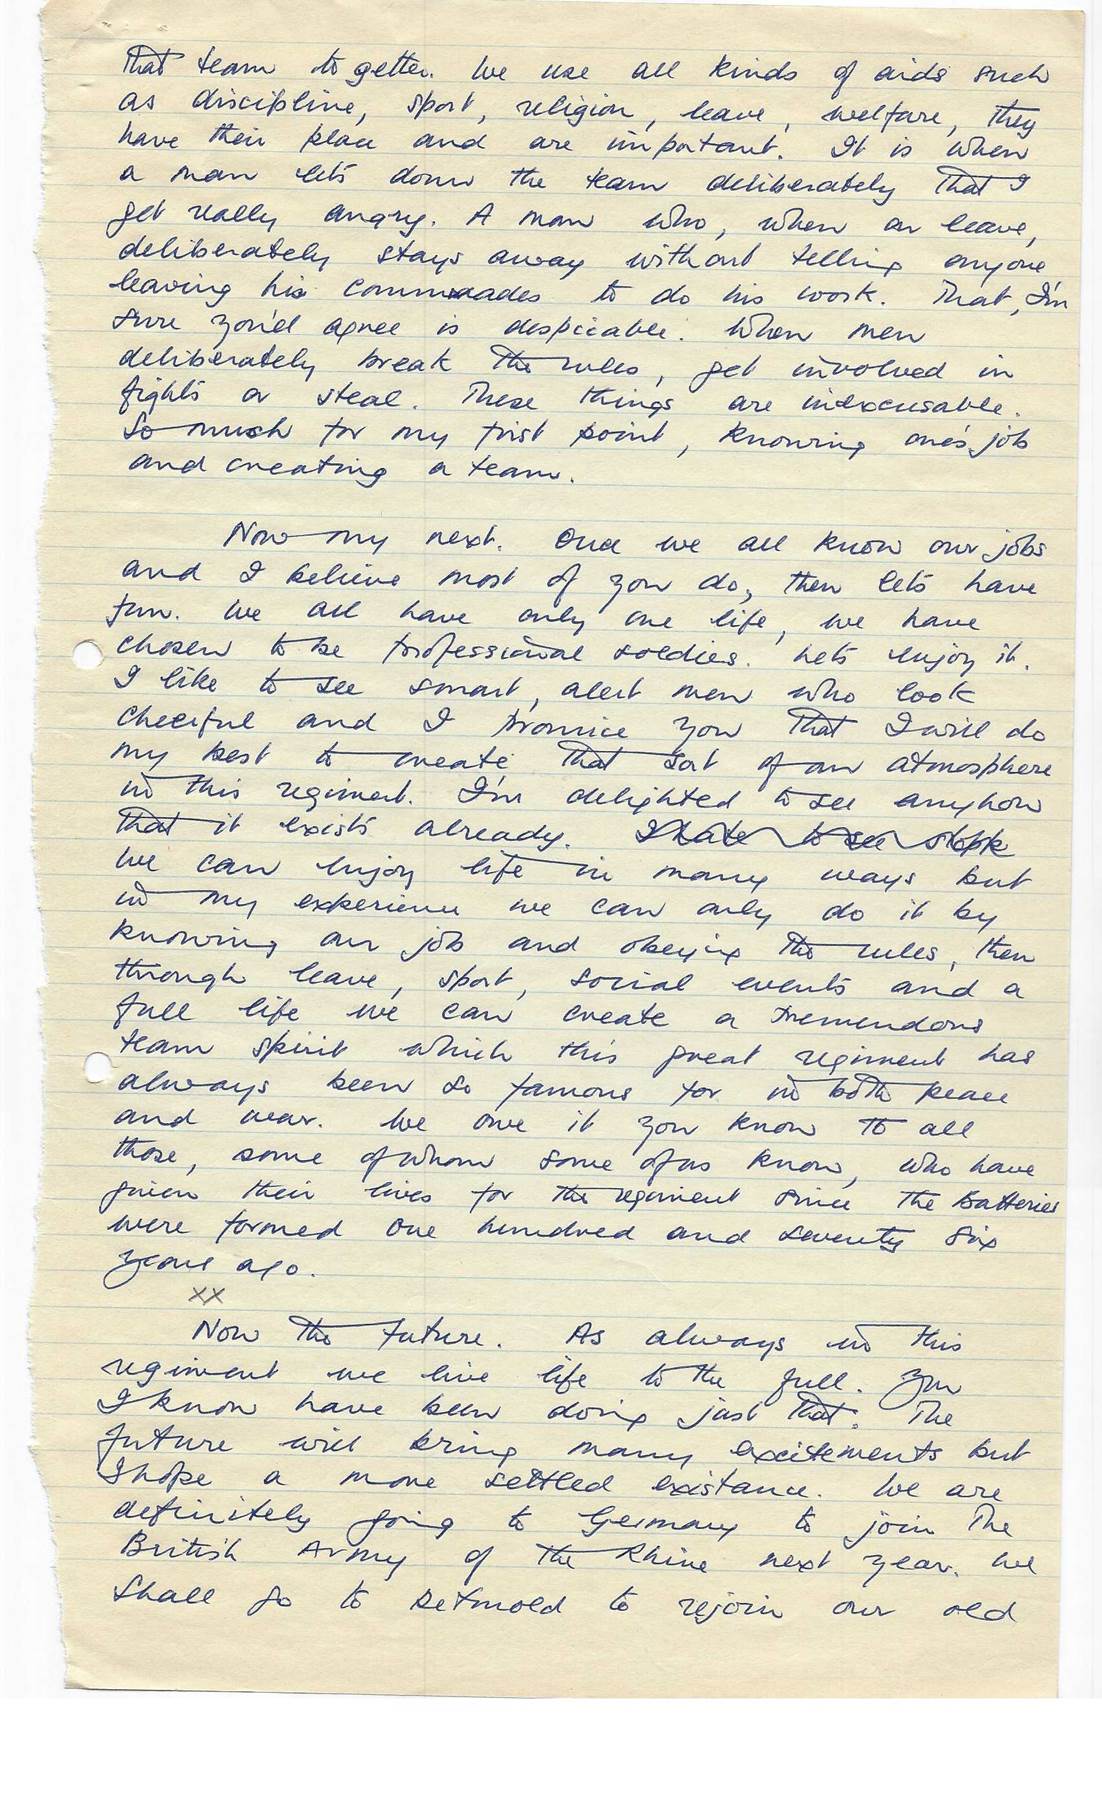 that team together. We use all kinds of aids such
as discipline, sport, religion, leave, welfare, they
have their place and are important. It is when
a man lets down the team deliberately that I
get really angry. A man who, when on leave,
deliberately stays away without telling anyone
leaving his commrades to do his work. That, I'm
sure you'd agree is despicable. When men
deliberately break the rules, get involved in
fights or steal. These things are inexcusable.
So much for my first point, knowing one's job
and creating a team.
Now my next. Once we all know our jobs
and I believe most of you do, then lets have
fun. We all have only one life, we have
chosen to be professional soldiers. Lets enjoy it.
I like to see smart, alert men who look
cheerful and I promice you that I will do
my best to create that sort of an atmosphere
in this regiment. I'm delighted to see anyhow
that it exists already. I hate to see
We can enjoy life in many ways but
in my experience we can only do it by
knowing our job and obeying the rules, then
through leave, sport, social events and a
full life we can create a tremendous
team spirit which this great regiment has
always been so famous for in both peace
and war. We owe it you know to all
those, some of whom some of us know, who have
given their lives for the regiment since the Batteries
were formed one hundred and seventy six
years ago.
xx
Now the future. As always in this
regiment we live life to the full. You
I know have been doing just that. The
future will bring many excitements but
I hope a more settled existance. We are
definitely going to Germany to join The
British Army of the Rhine next year. We
shall go to Detmold to rejoin our old